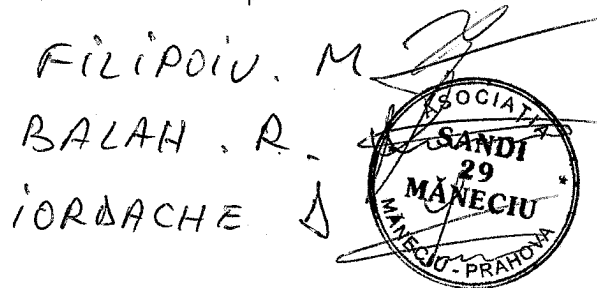 FILIPOIU. M
BALAH. R.
IORDACHE D
ASOCIAȚIA
SANDI
29
MĂNECIU
MĂNECIU - PRAHOVA